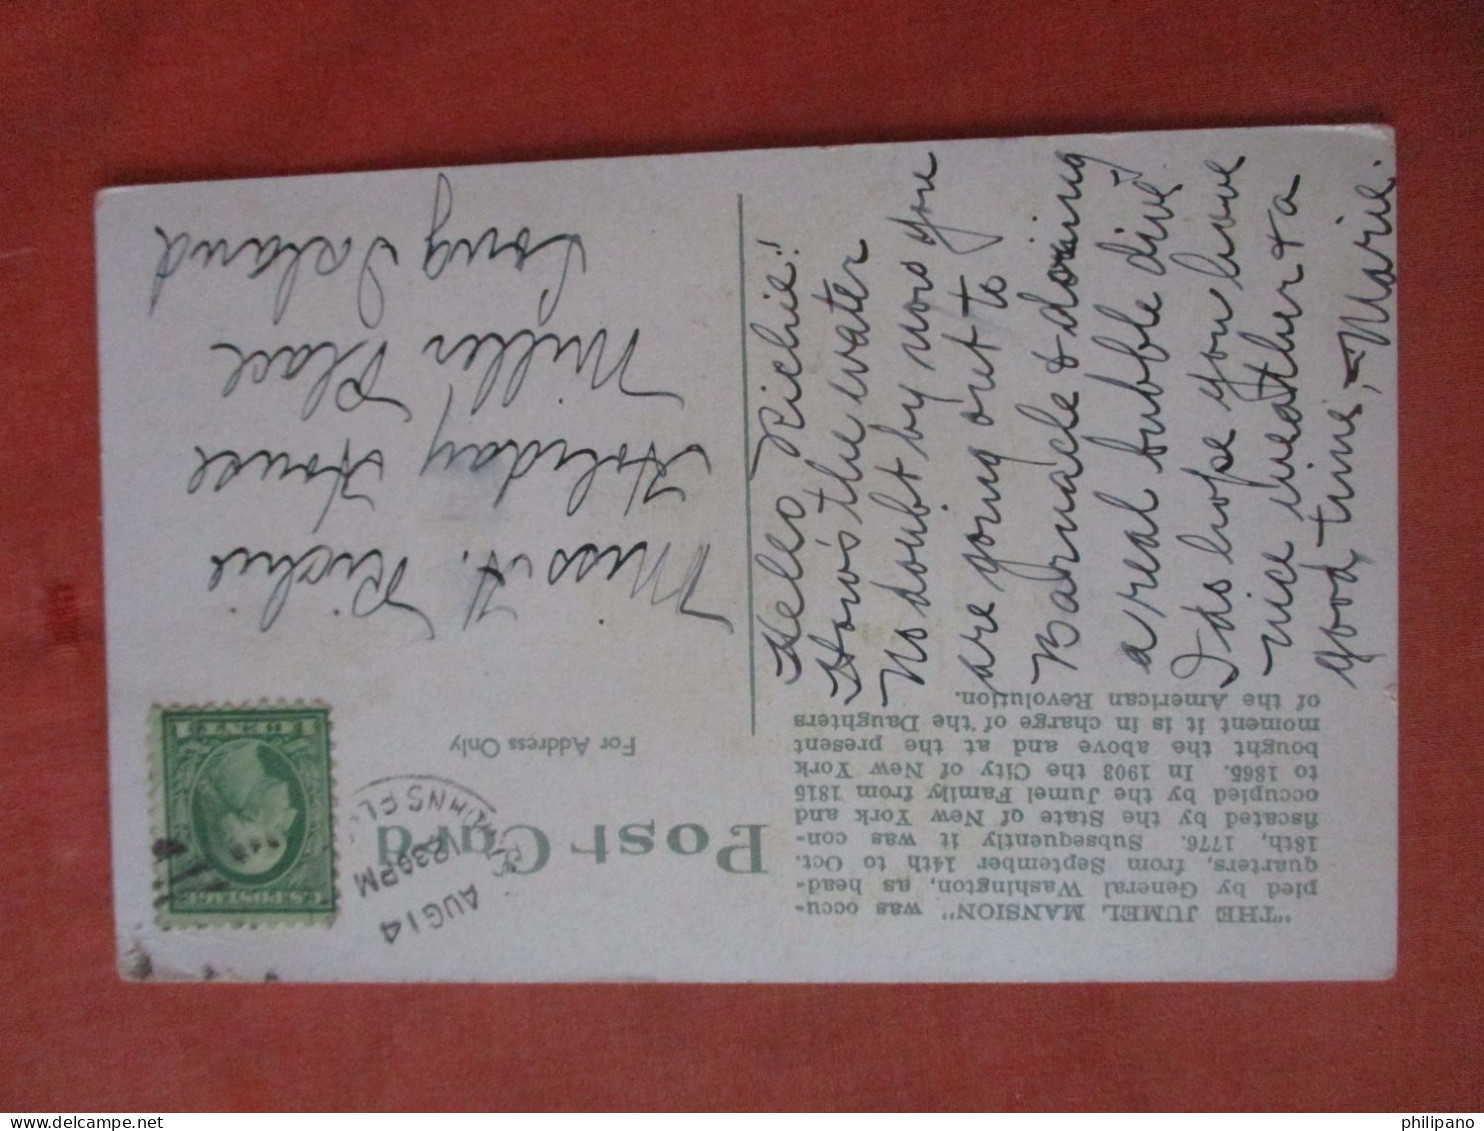 "THE JUMEL MANSION" was occu-
pied by General Washington, as head-
quarters, from September 14th to Oct.
18th, 1776. Subsequently it was con-
fiscated by the State of New York and
occupied by the Jumel Family from 1815
to 1865. In 1903 the City of New York
bought the above and at the present
moment it is in charge of the Daughters
of the American Revolution.
Hello Richie!
How's the water
No doubt by now you
are going out to
Barnacle & doing
a real bubble dive
I do hope you have
nice weather & a
good time, - Marie.
Post Card
For Address Only
AUG 14
230PM
U.S. POSTAGE
Miss H. Richie
Holiday House
Miller Place
Long Island
philipano